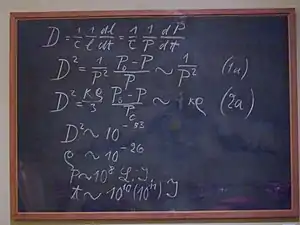 D = 1/c 1/l dl/dt = 1/c 1/P dP/dt
D² = 1/P² (P₀-P)/P ~ 1/P² (1a)
D² = κρ/3 (P₀-P)/P ~ κρ (2a)
D² ~ 10⁻⁵³
ρ ~ 10⁻²⁶
P ~ 10⁸ L. J
t ~ 10¹⁰ (10¹¹) J